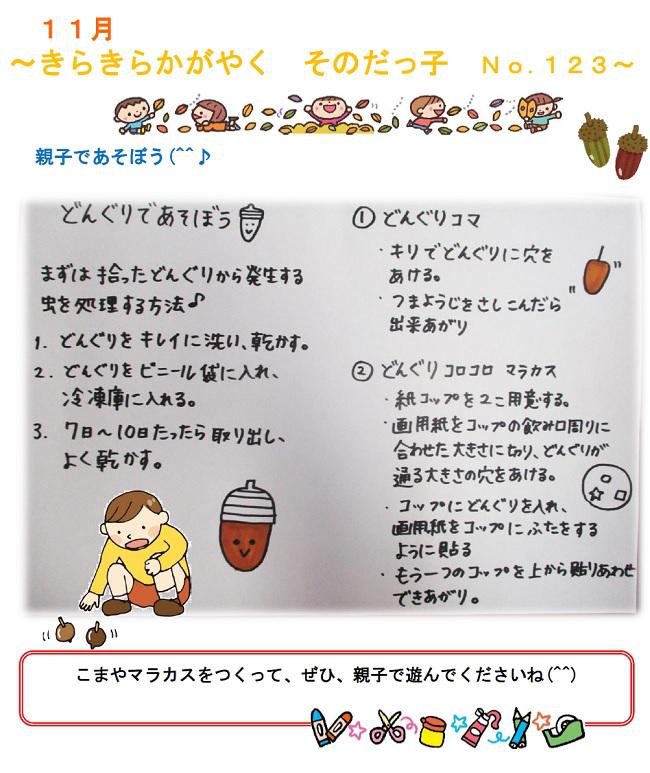 １１月
～きらきらかがやく　そのだっ子　Ｎｏ.１２３～
親子であそぼう(^^♪
どんぐりであそぼう
まずは拾ったどんぐりから発生する
虫を処理する方法♪
1. どんぐりをキレイに洗い、乾かす。
2. どんぐりをビニール袋に入れ、
冷凍庫に入れる。
3. 7日～10日たったら取り出し、
よく乾かす。
① どんぐりコマ
・キリでどんぐりに穴を
あける。
・つまようじをさしこんだら
出来あがり
② どんぐりコロコロ マラカス
・紙コップを2こ用意する。
・画用紙をコップの飲み口周りに
合わせた大きさに切り、どんぐりが
通る大きさの穴をあける。
・コップにどんぐりを入れ、
画用紙をコップにふたをする
ように貼る
・もう一つのコップを上から貼りあわせ
できあがり。
こまやマラカスをつくって、ぜひ、親子で遊んでくださいね(^^)